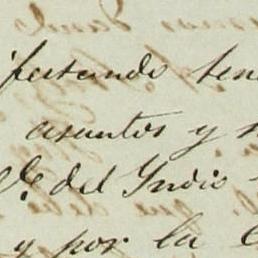 festando ten
asuntos y
del Indio
y por la